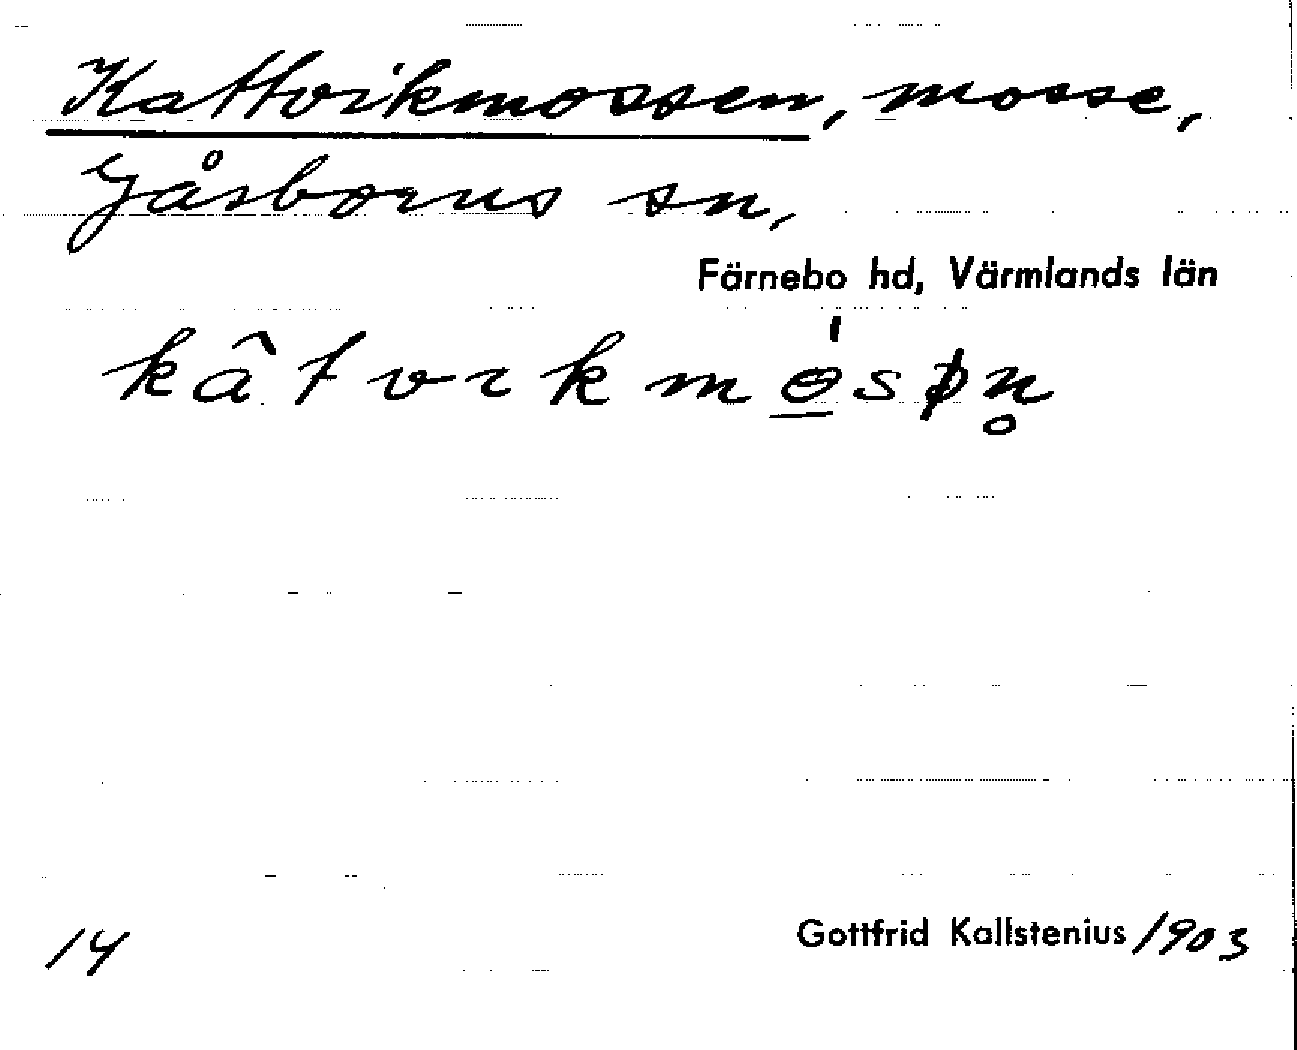 Kattvikmossen, mosse,
Gåsborns sn,
Färnebo hd, Värmlands län
kâtvikmo̲̍sɸn̥
14
Gottfrid Kallstenius /1903